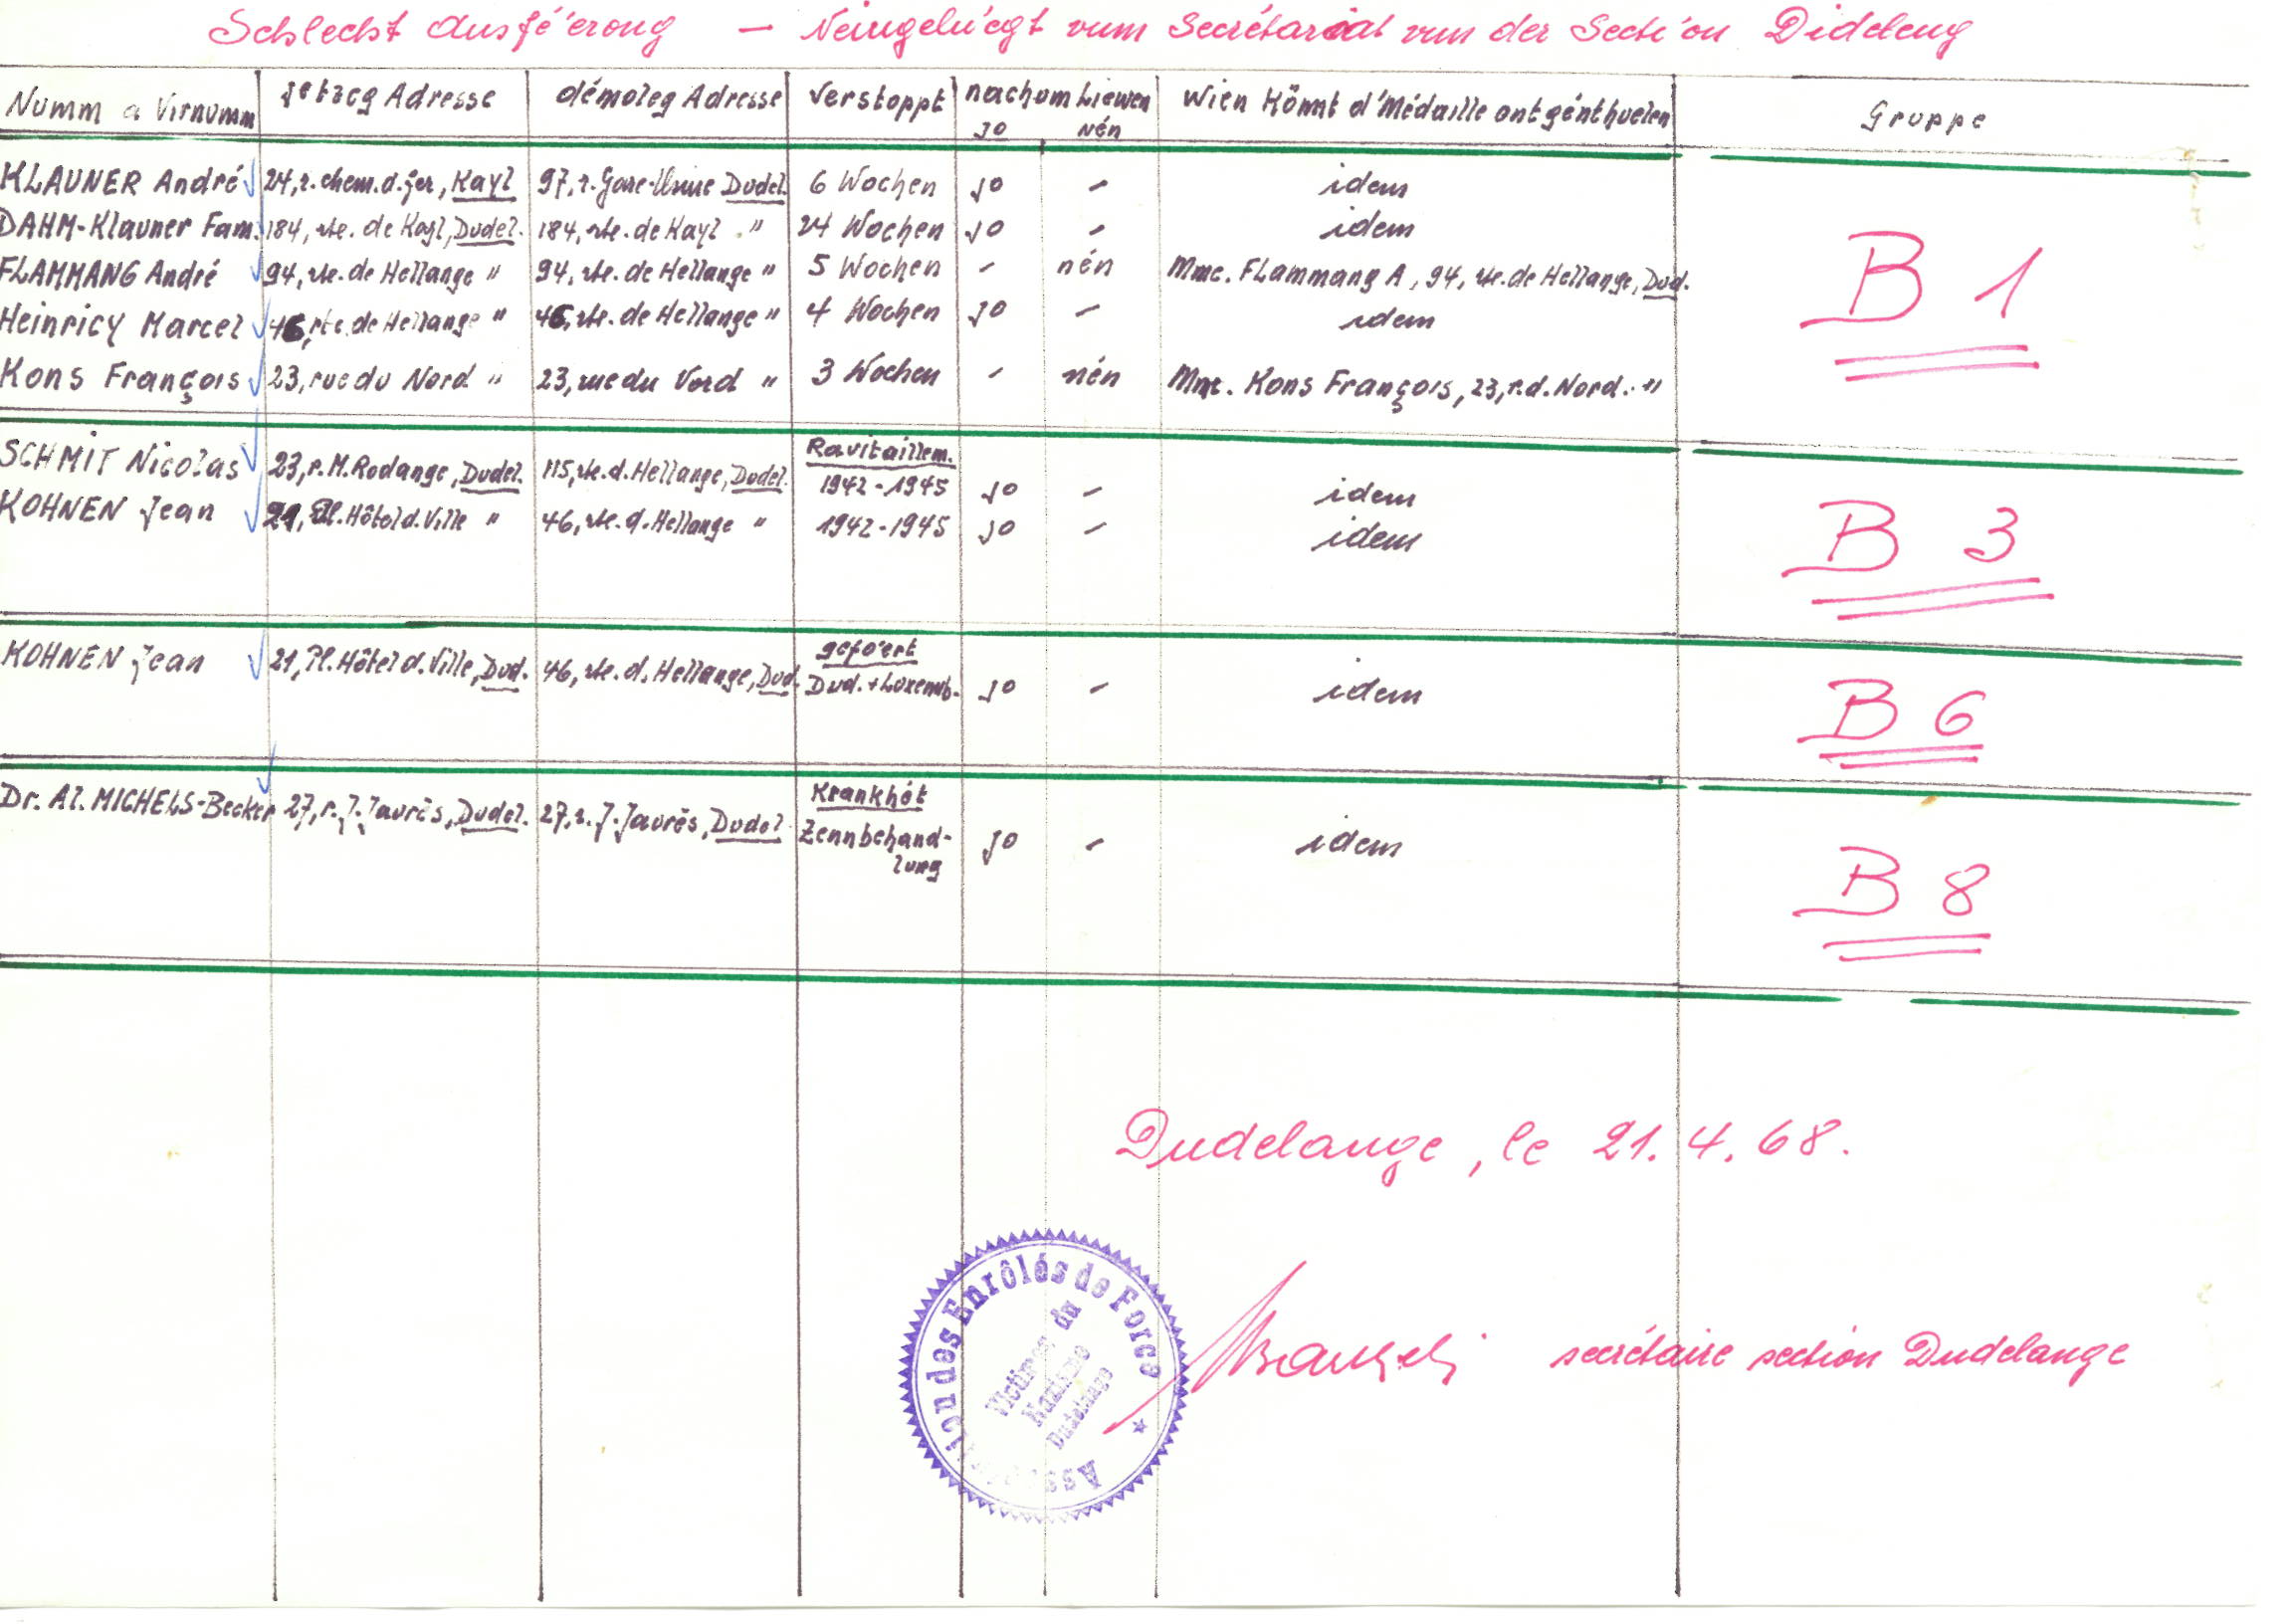 Schlecht Ausfé'erong — Neingelu'egt vum Secrétariat vun der Secti'on Dideleng
Numm a Virnumm jetzeg Adresse démoleg Adresse Verstoppt nach um Liewen Wien könnt d'Médaille ontgénthuelen Gruppe
jo nén
KLAUNER André 24, r. chem. d. fer, Kayl 97, r. Gare-Usine Dudel. 6 Wochen jo - idem
DAHM-Klauner Fam. 184, rte. de Kayl, Dudel. 184, rte. de Kayl " 24 Wochen jo - idem
FLAMMANG André 94, rte. de Hellange " 94, rte. de Hellange " 5 Wochen - nén Mme. Flammang A, 94, rte. de Hellange, Dud.
B 1
Heinricy Marcel 46, rte. de Hellange " 46, rte. de Hellange " 4 Wochen jo - idem
Kons François 23, rue du Nord " 23, rue du Nord " 3 Wochen - nén Mme. Kons François, 23, r. d. Nord. "
Ravitaillem.
SCHMIT Nicolas 23, r. M. Rodange, Dudel. 115, rte. d. Hellange, Dudel. 1942-1945 jo - idem
KOHNEN Jean 21, Pl. Hôtel d. Ville " 46, rte. d. Hellange " 1942-1945 jo - idem
B 3
gefo'ert
KOHNEN Jean 21, Pl. Hôtel d. Ville, Dud. 46, rte. d. Hellange, Dud. Dud. + Luxemb. jo - idem
B 6
Krankhét
Dr. Al. MICHELS-Becker 27, r. J. Jaurès, Dudel. 27, r. J. Jaurès, Dudel Zennbehand-
lung jo - idem
B 8
Dudelange, le 21. 4. 68.
Association des Enrôlés de Force
Victimes du
Nazisme
Dudelange
secrétaire section Dudelange